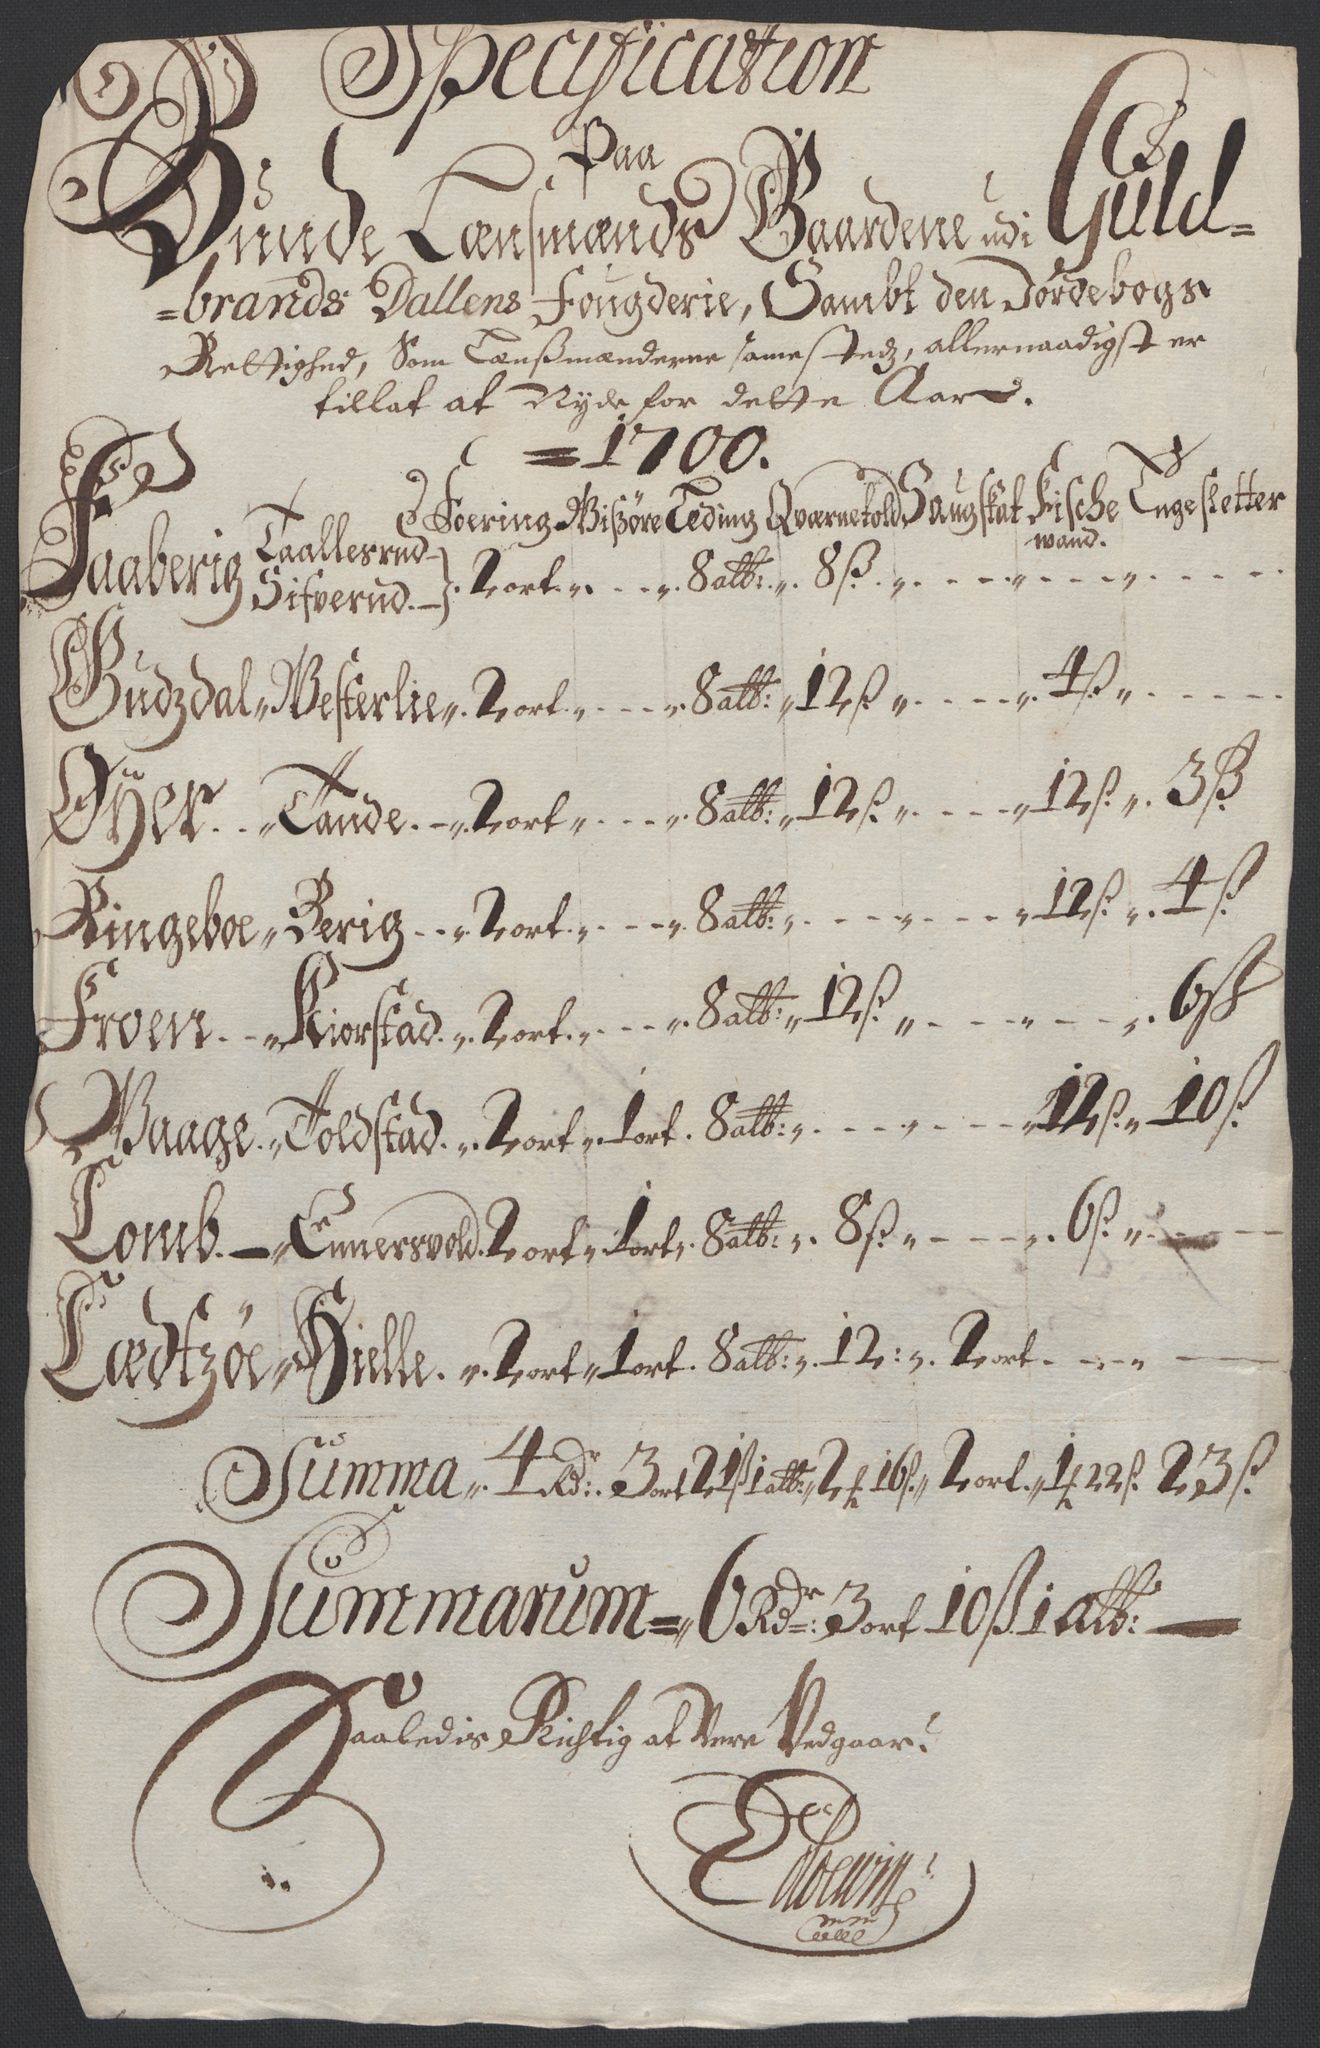 Specification
Paa
Bunde Lænsmænds Gaardene udi Guld=
=brands Dallens Fougderie, Sambt den Jordebogs
Rettighed, Som Lænßmænderne samestedz, allernaadigst er
tillat at Nyde for dette Aar
=1700.
Foering Wißøre Leding Qværnetold Saugskat Fische Engesletter
wand.
Faaberig Taallesrud
Sifverud } 2 ort 8 alb: 8 ß
Gudzdal Westerlie 2 ort 8 alb: 12 ß 4 ß
Øÿer Tande 2 ort 8 alb: 12 ß 12 ß 3 ß
Ringeboe Berig 2 ort 8 alb: 12 ß 4 ß
Froen Kiorstad 2 ort 8 alb: 12 ß 6 ß
Waage Toldstad 2 ort 1 ort 8 alb: 12 ß 10 ß
Lomb Ennersvold 2 ort 1 ort 8 alb: 8 ß 6 ß
Lædtzøe Hielle 2 ort 1 ort 8 alb: 12: 2 ort
Summa 4 Rdr: 3 ort 21 ß 1 alb: 2 ℔ 16 ß 2 ort 1 ℔ 22 ß 23 ß
Summarum = 6 Rdr: 3 ort 10 ß 1 alb:
Saaledis Richtig at Vere Vedgaar